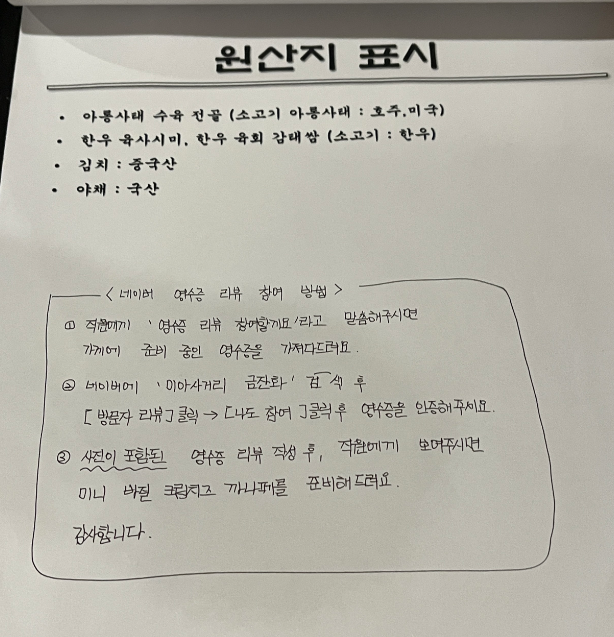 원산지 표시
• 아롱사태 수육 전골 (소고기 아롱사태 : 호주,미국)
• 한우 육사시미, 한우 육회 감태쌈 (소고기 : 한우)
• 김치 : 중국산
• 야채 : 국산
< 네이버 영수증 리뷰 참여 방법 >
① 직원에게 '영수증 리뷰 참여할게요'라고 말씀해주시면
가게에 준비 중인 영수증을 가져다드려요.
② 네이버에 '미아사거리 금잔화' 검색 후
[방문자 리뷰] 클릭 → [나도 참여] 클릭 후 영수증을 인증해주세요.
③ 사진이 포함된 영수증 리뷰 작성 후, 직원에게 보여주시면
미니 바질 크림치즈 까나페를 준비해드려요.
감사합니다.